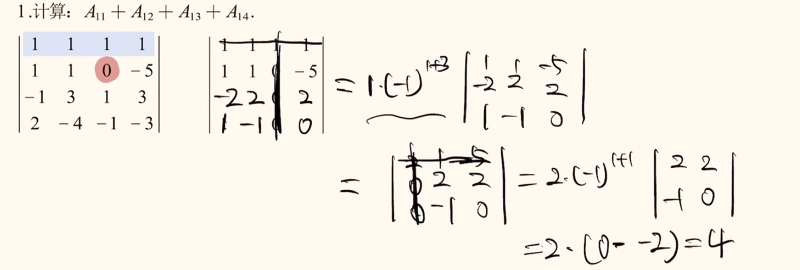 1.计算：A₁₁ + A₁₂ + A₁₃ + A₁₄.
| 1 1 1 1 |
| 1 1 0 -5 |
| -1 3 1 3 |
| 2 -4 -1 -3 |
| 1 1 1 1 |
| 1 1 0 -5 |
| -2 2 0 2 |
| 1 -1 0 0 |
= 1·(-1)¹⁺³
| 1 1 -5 |
| -2 2 2 |
| 1 -1 0 |
=
| 2 1 -5 |
| 0 2 2 |
| 0 -1 0 |
= 2·(-1)¹⁺¹
| 2 2 |
| -1 0 |
= 2·(0--2)=4